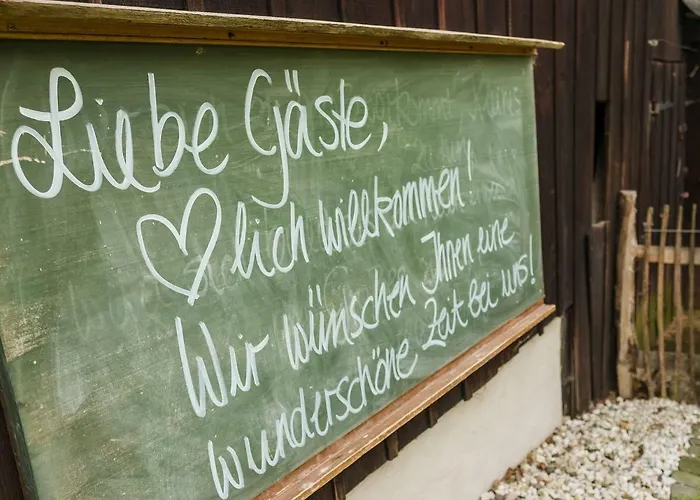 Liebe Gäste,
♡lich willkommen!
Wir wünschen Ihnen eine
wunderschöne Zeit bei uns!